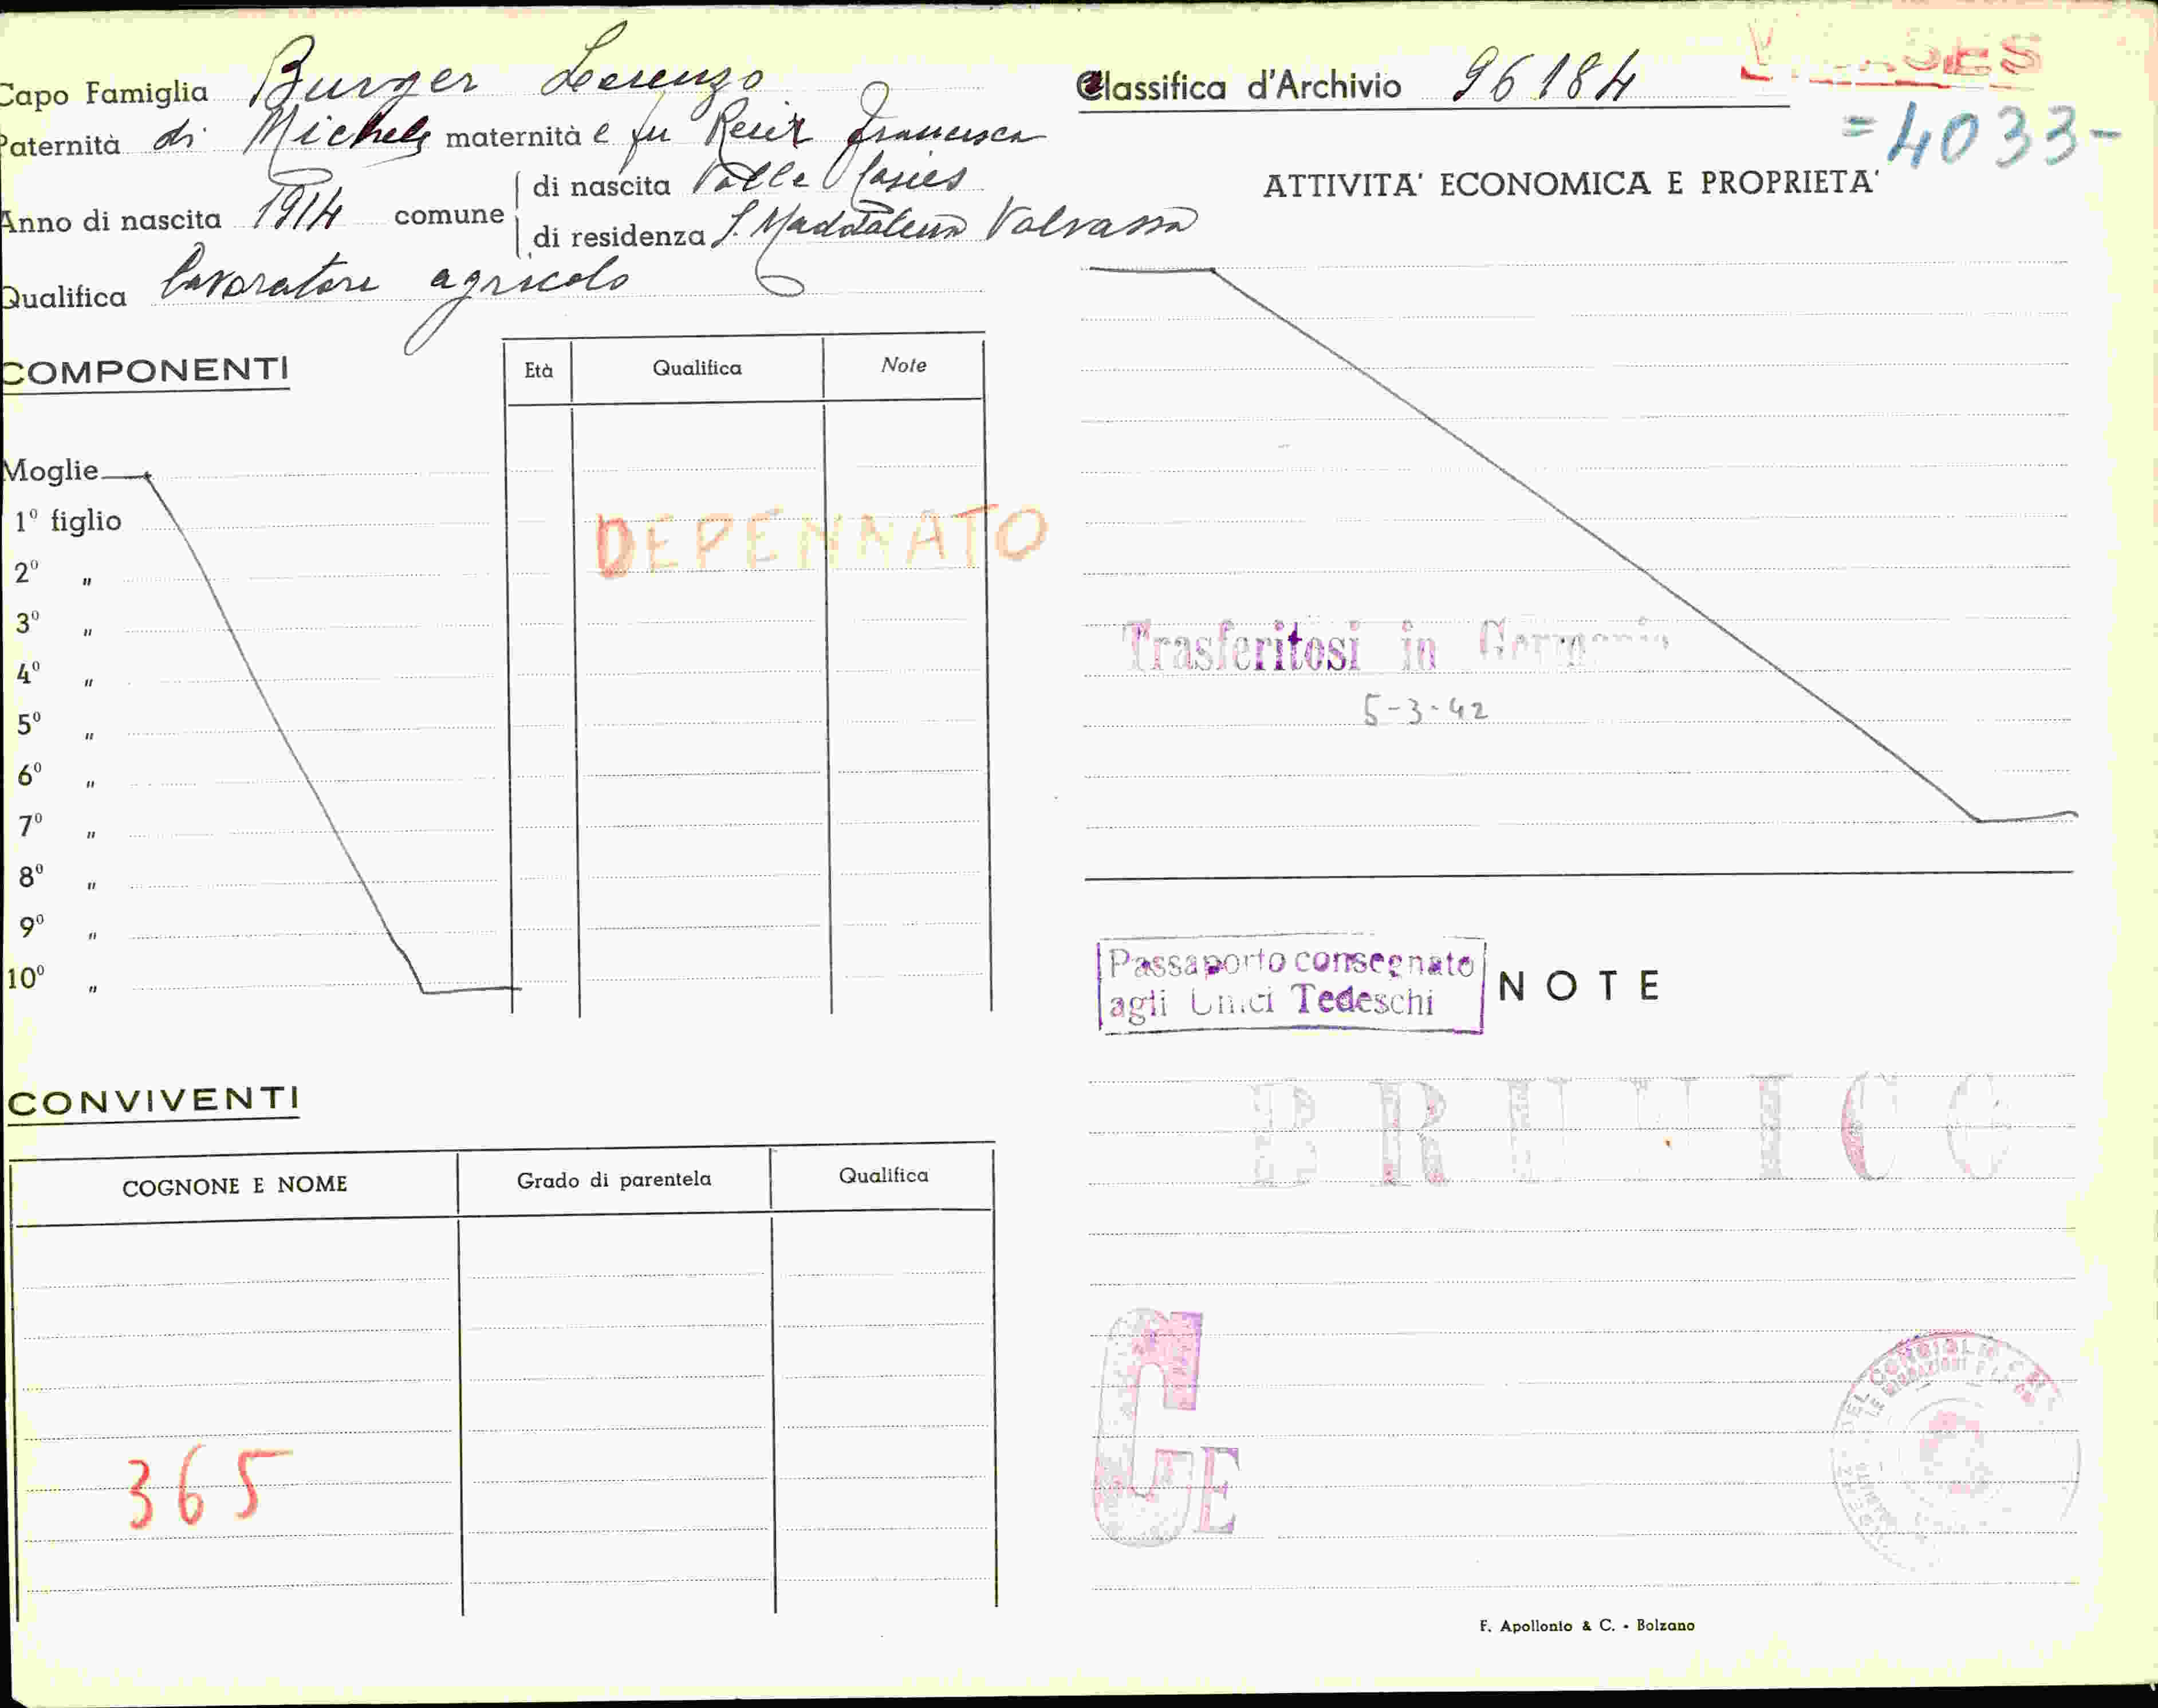 Capo Famiglia Burger Lorenzo
Paternità di Michele maternità e fu Francesca
Anno di nascita 1914 comune
di nascita Valle Casies
di residenza S. Maddalena
Qualifica lavoratore agricolo
COMPONENTI
Età Qualifica Note
Moglie
1° figlio
2° "
3° "
4° "
5° "
6° "
7° "
8° "
9° "
10° "
DEPENNATO
CONVIVENTI
COGNONE E NOME Grado di parentela Qualifica
365
Classifica d'Archivio 96184
=4033-
ATTIVITA' ECONOMICA E PROPRIETA'
Trasferitosi in Germania
5-3-42
Passaporto consegnato
agli Uffici Tedeschi
NOTE
BRUNICO
G
E
F. Apollonio & C. - Bolzano